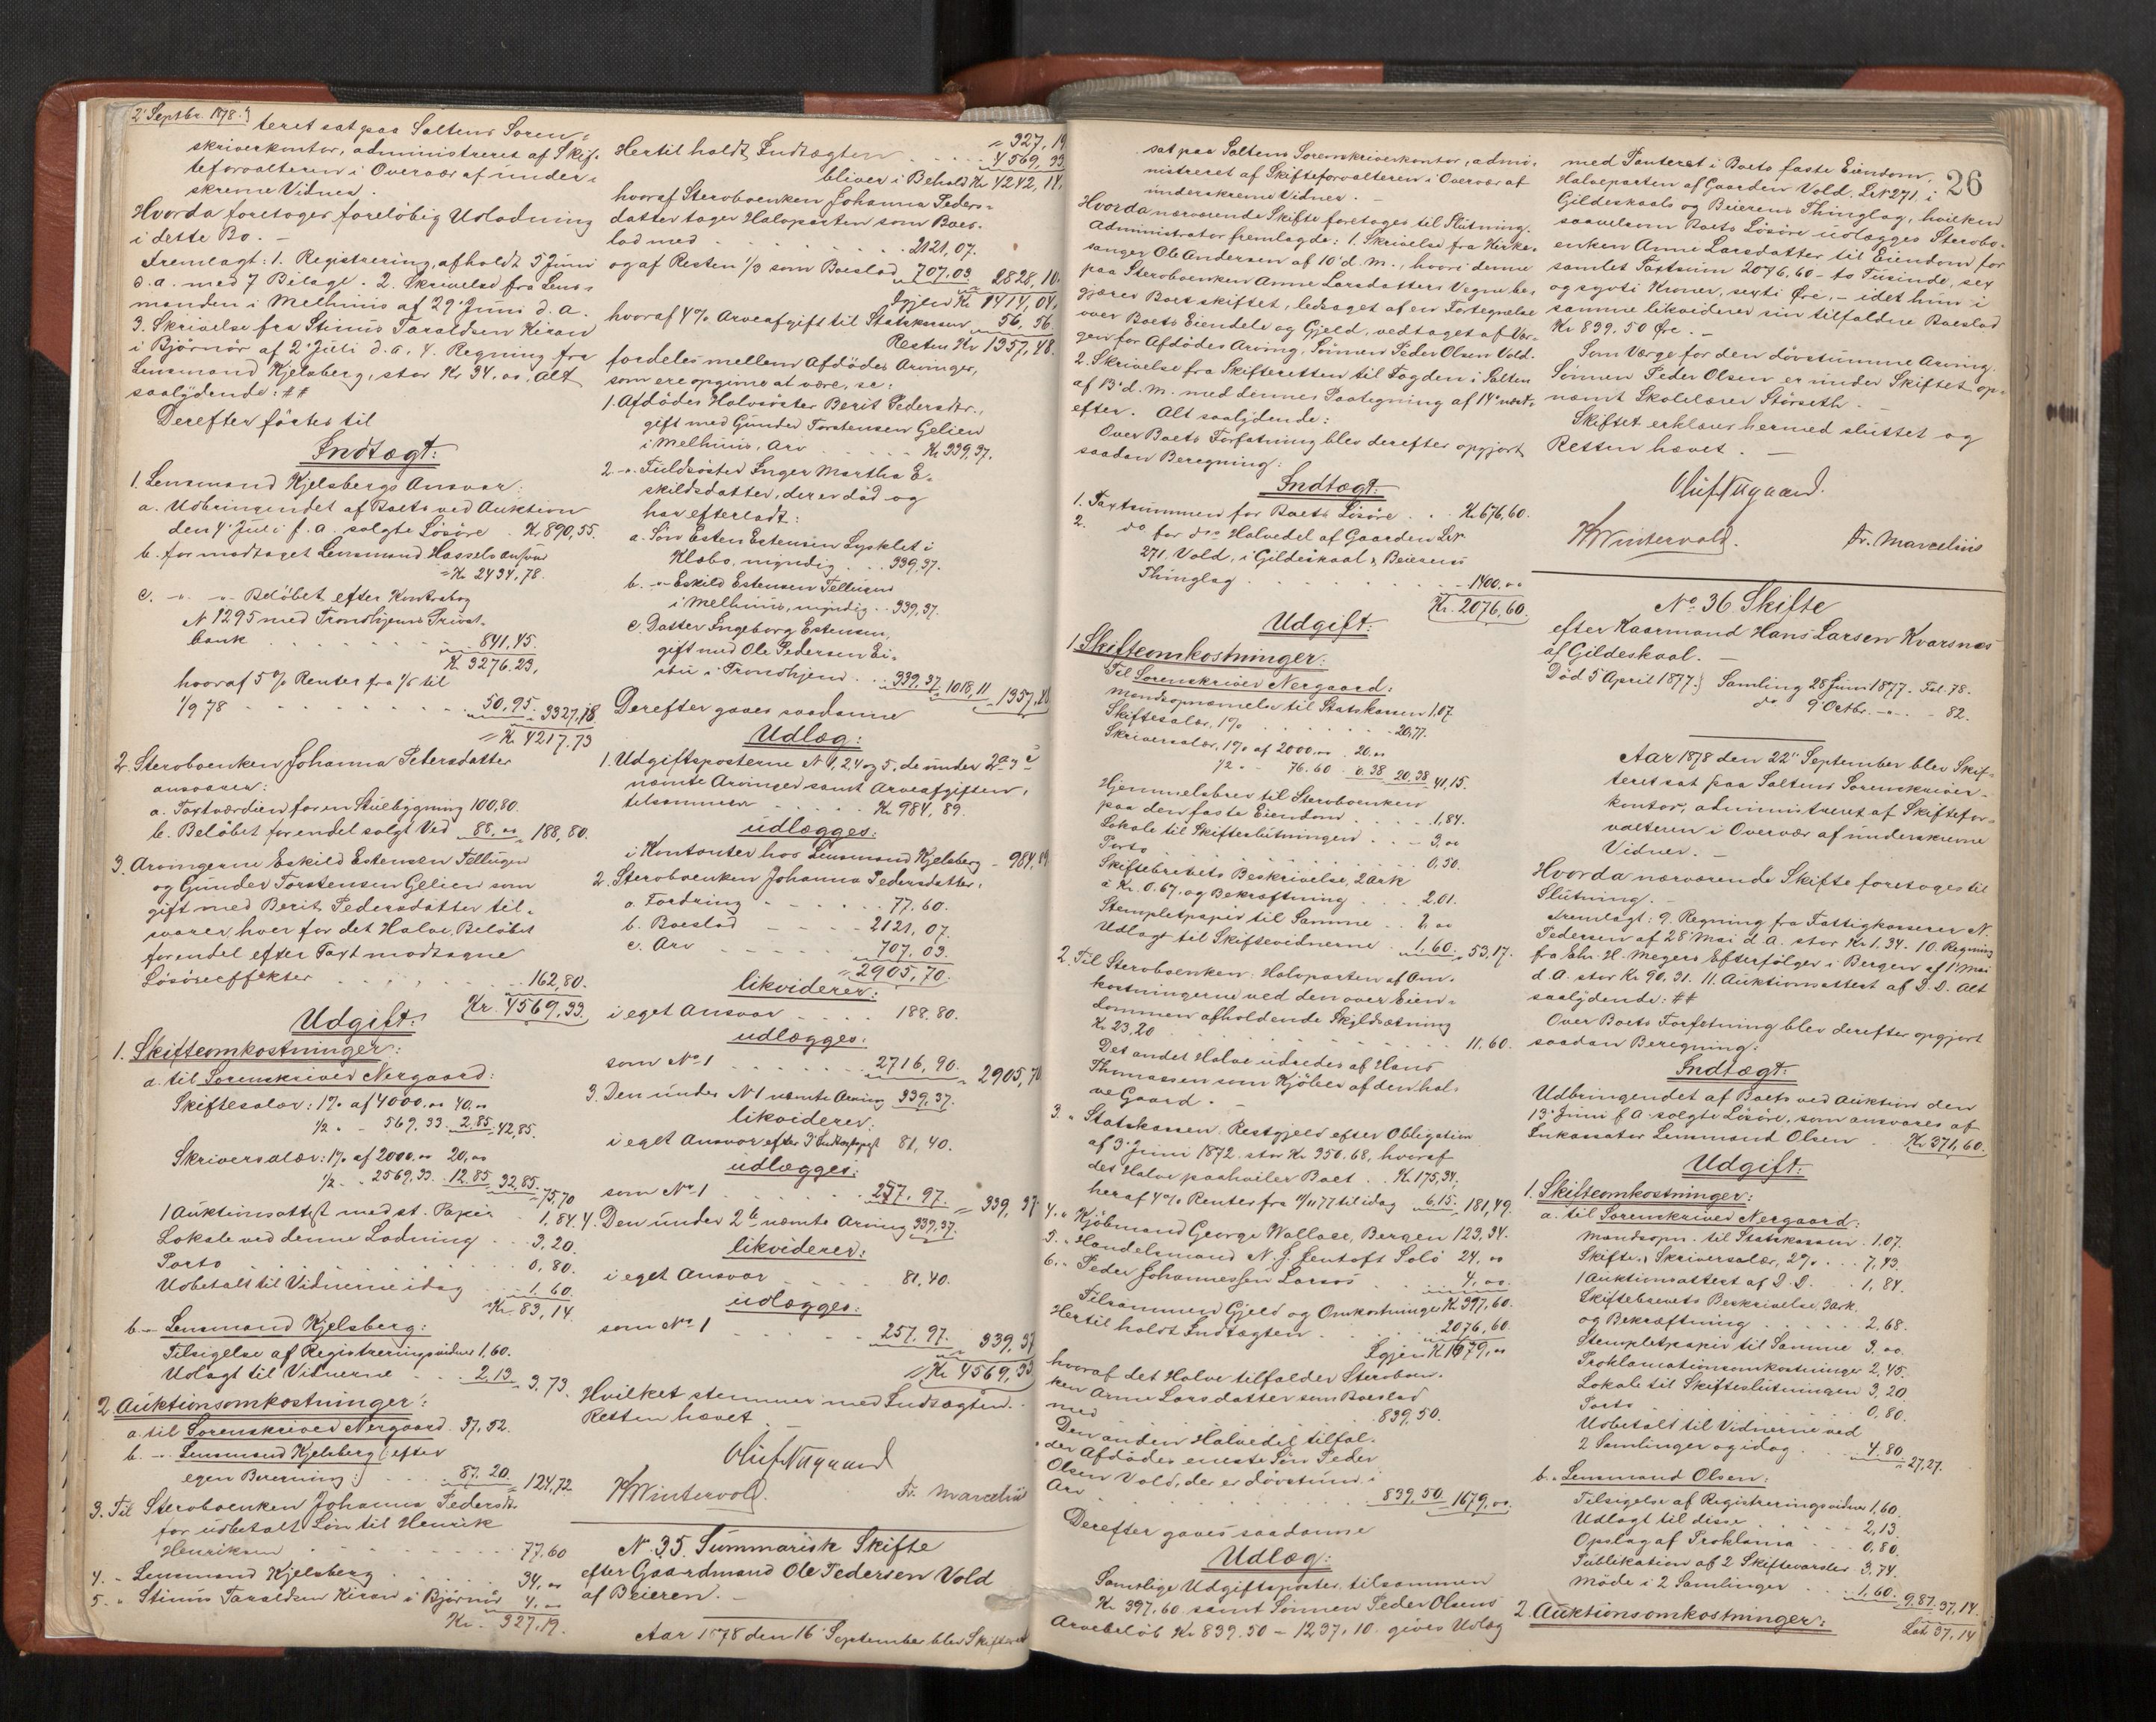 2' Septbr. 1878.
teret sat paa Saltens Soren-
skriverkontor, administreret af Skif-
teforvalteren i Overvær af under-
skrevne Vidner.
Hvorda foretoges foreløbig Udlodning
i dette Bo. —
Fremlagt: 1. Registrering, afholdt 5 Juni
d. a. med 7 Bilage. 2. Skrivelse fra Lens-
manden i Melhuus af 29' Juni d. A.
3. Skrivelse fra Stinus Taraldsen Kiran
i Bjørnør af 2' Juli d. a. 4. Regning fra
Lensmand Kjelsberg, stor Kr 34.00, Alt
saalydende: ##
Derefter førtes til
Indtægt:
1. Lensmand Kjelsbergs Ansvar:
a. Udbringendet af Boets ved Auktion
den 4' Juli f. a. solgte Løsøre . Kr 890,55.
b. for modtaget Lensmand Hassels ansvar
= Kr 2434,78.
c. -"- -"- Beløbet efter Kontrabog
N 1295 med Trondhjems Privat-
bank . . . . . 841,45.
K. 3276.23,
hvoraf 5% Renter fra 1/5 til
1/9 78 . . . . . 50,95. 3327,18
= Kr 4217.73
2. Sterboenken Johanna Petersdatter
ansvarer:
a. Taxtværdien for en Stuebygning 100,80.
b. Beløbet for endel solgt Ved 88,00 188,80.
3. Arvingerne Eskild Estensen Tellugen
og Gunder Torstensen Gelien som
gift med Berit Pedersdatter til-
svarer, hver for det Halve, Beløbet
for endel efter Taxt modtagne
Løsøreeffekter . . . . 162,80.
Kr. 4569,33.
Udgift:
1. Skifteomkostninger:
a. til Sorenskriver Nergaard:
Skiftesalær: 1% af 4000.00 40.00
1/2 - 569,33 2,85 42,85.
Skriversalær: 1% af 2000.00 20,00
1/2 - 2569,33 12,85 32,85. 75,70
1 Auktionsattest med st. Papir 1,84.
Lokale ved denne Lodning . . 3,20.
Porto . . . . . 0,80.
Udbetalt til Vidnerne idag . 1,60.
Kr. 83,14.
b. - Lensmand Kjelsberg:
Tilsigelse af Registreringsvidner 1,60.
Udlagt til Vidnerne . . 2,13. 3,73.
2. Auktionsomkostninger:
a. til Sorenskriver Nergaard. 37,52.
b. - Lensmand Kjelsberg (: efter
egen Beregning :) . . 87.20. 124,72.
3. Til Sterboenken Johanna Pedersdtr.
for udbetalt Løn til Henrik
Henriksen . . . . . 77,60
4. - Lensmand Kjelsberg . . . 34,00
5. " Stinus Taraldsen Kiran i Bjørnør 4,00
Kr. 327,19.
= 327,19
Hertil holdt Indtægten . . . 4569,33
bliver i Behold Kr 4242,14.
hvoraf Sterboenken Johanna Peders-
datter tager Halvparten som Boes-
lod med . . . . . 2121,07.
og af Resten 1/3 som Broderlod 707.03 2828,10.
Igjen Kr 1414,04,
hvoraf 4% Arveafgift til Statskassen 56,56.
Resten Kr 1357,48.
fordeles mellem Afdødes Arvinger,
som ere opgivne at være, se:
1. Afdødes Halvsøster Berit Pedersdtr.,
gift med Gunder Torstensen Gelien
i Melhuus, Arv . . . . Kr 339,37.
2. -"- Fuldsøster Inger Martha E-
skildsdatter, der er død og
har efterladt:
a. Søn Esten Estensen Lysklet i
Klæbo, myndig . . . 339,37.
b. -"- Eskild Estensen Tellugen
i Melhuus, myndig . . 339,37.
c. Datter Ingeborg Estensen,
gift med Ole Pedersen Ei-
stu i Trondhjem . . 339,37. 1018,11 1357,48
Derefter gaves saadanne
Udlæg:
1. Udgiftsposterne N 1, 2, 4 og 5, de under 2 a og c
nævnte Arvinger samt Arveafgiften,
tilsammen . . . . . Kr 984,89.
udlægges:
i Kontanter hos Lensmand Kjelsberg = 984,89
2. Sterboenken Johanna Pedersdatter,
a. Fordring . . . . 77,60.
b. Boeslod . . . . 2121,07.
c. Arv . . . . . 707.03.
= 2905,70.
likviderer:
i eget Ansvar . . . . 188.80.
udlægges:
som No 1 . . . . . 2716,90. = 2905,70
3. Den under N 1 nævnte Arving 339,37.
likviderer:
i eget Ansvar efter 3' Indtægtspost 81,40.
udlægges:
som No 1 . . . . . 257.97. = 339,37
4. Den under 2 b nævnte Arving 339,37.
likviderer:
i eget Ansvar . . . . 81,40.
udlægges:
som No 1 . . . . . 257,97. 339,37
= Kr 4569,33
Hvilket stemmer med Indtægten. -
Retten hævet.
Oluf Nygaard
K Wintervold. Fr. Marcelius
No 35. Summarisk Skifte
efter Gaardmand Ole Pedersen Vold
af Beieren. —
Aar 1878 den 16' September blev Skifteret
26
sat paa Saltens Sorenskriverkontor, admi-
nistreret af Skifteforvalteren i Overvær af
underskrevne Vidner. —
Hvorda nærværende Skifte foretoges til Slutning.
Administrator fremlagde: 1. Skrivelse fra Kirke-
sanger Ole Andersen af 10' d. M., hvori denne
paa Sterboenken Anne Larsdatters Vegne be-
gjærer Boet skiftet, ledsaget af en Fortegnelse
over Boets Eiendele og Gjeld, vedtaget af Vær-
gen for Afdødes Arving, Sønnen Peder Olsen Vold.
2. Skrivelse fra Skifteretten til Fogden i Salten
af 13' d. M. med dennes Paategning af 14' næst-
efter. Alt saalydende:
Over Boets Forfatning blev derefter opgjort
saadan Beregning:
Indtægt:
1. Taxtsummen for Boets Løsøre . . . Kr 676,60.
2. do for den Halvedel af Gaarden LNr
271. Vold, i Gildeskaal & Beierens
Thinglag . . . . . 1400,00
Kr. 2076,60.
Udgift:
1. Skifteomkostninger:
Til Sorenskriver Nergaard:
Mandsopnævnelse til Statskassen 1,07.
Skiftesalær, 1% . . . . . 20,77.
Skriversalær, 1% af 2000,00 20.00
1/2 - 76.60 0.38 20.38 41,15.
Hjemmelsbrev til Sterboenken
paa den faste Eiendom . . . . 1,84.
Lokale til Skifteslutningen . . . 3,00
Porto . . . . . 0,50.
Skiftebrevets Beskrivelse, 2 Ark
à Kr. 0.67, og Bekræftning . . . . 2,01.
Stempletpapir til Samme . . . 2,00
Udlagt til Skiftevidnerne . . 1,60. 53,17.
2. Til Sterboenken: Halvparten af Om-
kostningerne ved den over Eien-
dommen afholdende Skyldsætning
Kr. 23,20 . . . . . 11.60.
Det andet Halve udredes af Hans
Thomassen som Kjøber af den hal-
ve Gaard. —
3. " Statskassen. Restgjeld efter Obligation
af 3' Juni 1872, stor Kr. 350.68, hvoraf
det Halve paahviler Boet . . K. 175,34,
heraf 4% Renter fra 11/11 77 til idag 6,15. 181,49.
4. " Kjøbmand George Wallace, Bergen 123,34.
5. " Handelsmand N. J. Jentoft Solø 24,00
6. " Peder Johannessen Larsos . . . 4,00.
Tilsammen Gjeld og Omkostninger Kr 397,60.
Hertil holdt Indtægten . . . . 2076,60
Igjen K 1679,00
hvoraf det Halve tilfalder Sterboen-
ken Anne Larsdatter som Boeslod
med . . . . . 839,50.
Den anden Halvedel tilfal-
der Afdødes eneste Søn Peder
Olsen Vold, der er døvstum, i
Arv . . . . . 839,50 1679,00.
Derefter gaves saadanne
Udlæg:
Samtlige Udgiftsposter, tilsammen
Kr. 397,60 samt Sønnen Peder Olsens
Arvebeløb Kr 839.50 - 1237,10. gives Udlæg
med Panteret i Boets faste Eiendom,
Halvparten af Gaarden Vold, LNr 271, i
Gildeskaals og Beierens Thinglag, hvilken
saavelsom Boets Løsøre udlægges Sterbo-
enken Anne Larsdatter til Eiendom for
samlet Taxtsum 2076,60 - to Tusinde, sex
og sytti Kroner, sexti Øre, - idet hun i
samme likviderer sin tilfaldne Boeslod
Kr 839.50 Øre.
Som Værge for den døvstumme Arving
Sønnen Peder Olsen er under Skiftet op-
nævnt Skolelærer Storseth. —
Skiftet erklæres hermed sluttet og
Retten hævet. —
Oluf Nygaard.
K Wintervold. Fr. Marcelius
No. 36 Skifte
efter Kaarmand Hans Larsen Kvarsnæs
af Gildeskaal. —
Død 5 April 1877. } Samling 28 Juni 1877. Fol. 78.
do 9' Octbr. -"- - 82.
Aar 1878 den 22' September blev Skif-
teret sat paa Saltens Sorenskriver-
kontor, administreret af Skiftefor-
valteren i Overvær af underskrevne
Vidner. —
Hvorda nærværende Skifte foretoges til
Slutning. —
Fremlagt: 9. Regning fra Fattigkasserer N.
Pedersen af 28' Mai d. A. stor Kr 1,34. 10. Regning
fra Chr. H. Meyers Efterfølger i Bergen af 1' Mai
d. A. stor Kr. 90,31. 11. Auktionsattest af D. D. Alt
saalydende: ##
Over Boets Forfatning blev derefter opgjort
saadan Beregning:
Indtægt:
Udbringendet af Boets ved Auktion den
13' Juni f. A. solgte Løsøre, som ansvares af
Inkassator Lensmand Olsen . Kr. 371,60.
Udgift:
1. Skifteomkostninger:
a. til Sorenskriver Nergaard:
Mandsopn. til Statskassen . 1,07.
Skifte- & Skriversalær, 2% . . . 7,43.
1 Auktionsattest af D. D. . . 1,84.
Skiftebrevets Beskrivelse, 3 ark.
og Bekræftning . . . . . 2,68.
Stempletpapir til Samme 3,00.
Proklamationsomkostninger 2,45.
Lokale til Skifteslutningen 3,20
Porto . . . . . 0,80.
Udbetalt til Vidnerne ved
2 Samlinger og idag . . . 4,80. 27,27.
b. " Lensmand Olsen:
Tilsigelse af Registreringsvidner 1,60.
Udlagt til disse . . . . 2,13.
Opslag af Proklama . . . 0,80.
Publikation af 2 Skiftevarsler 3,74.
Møde i 2 Samlinger . . . 1,60. 9,87. 37,14.
2. Auktionsomkostninger:
Lat. 37,14